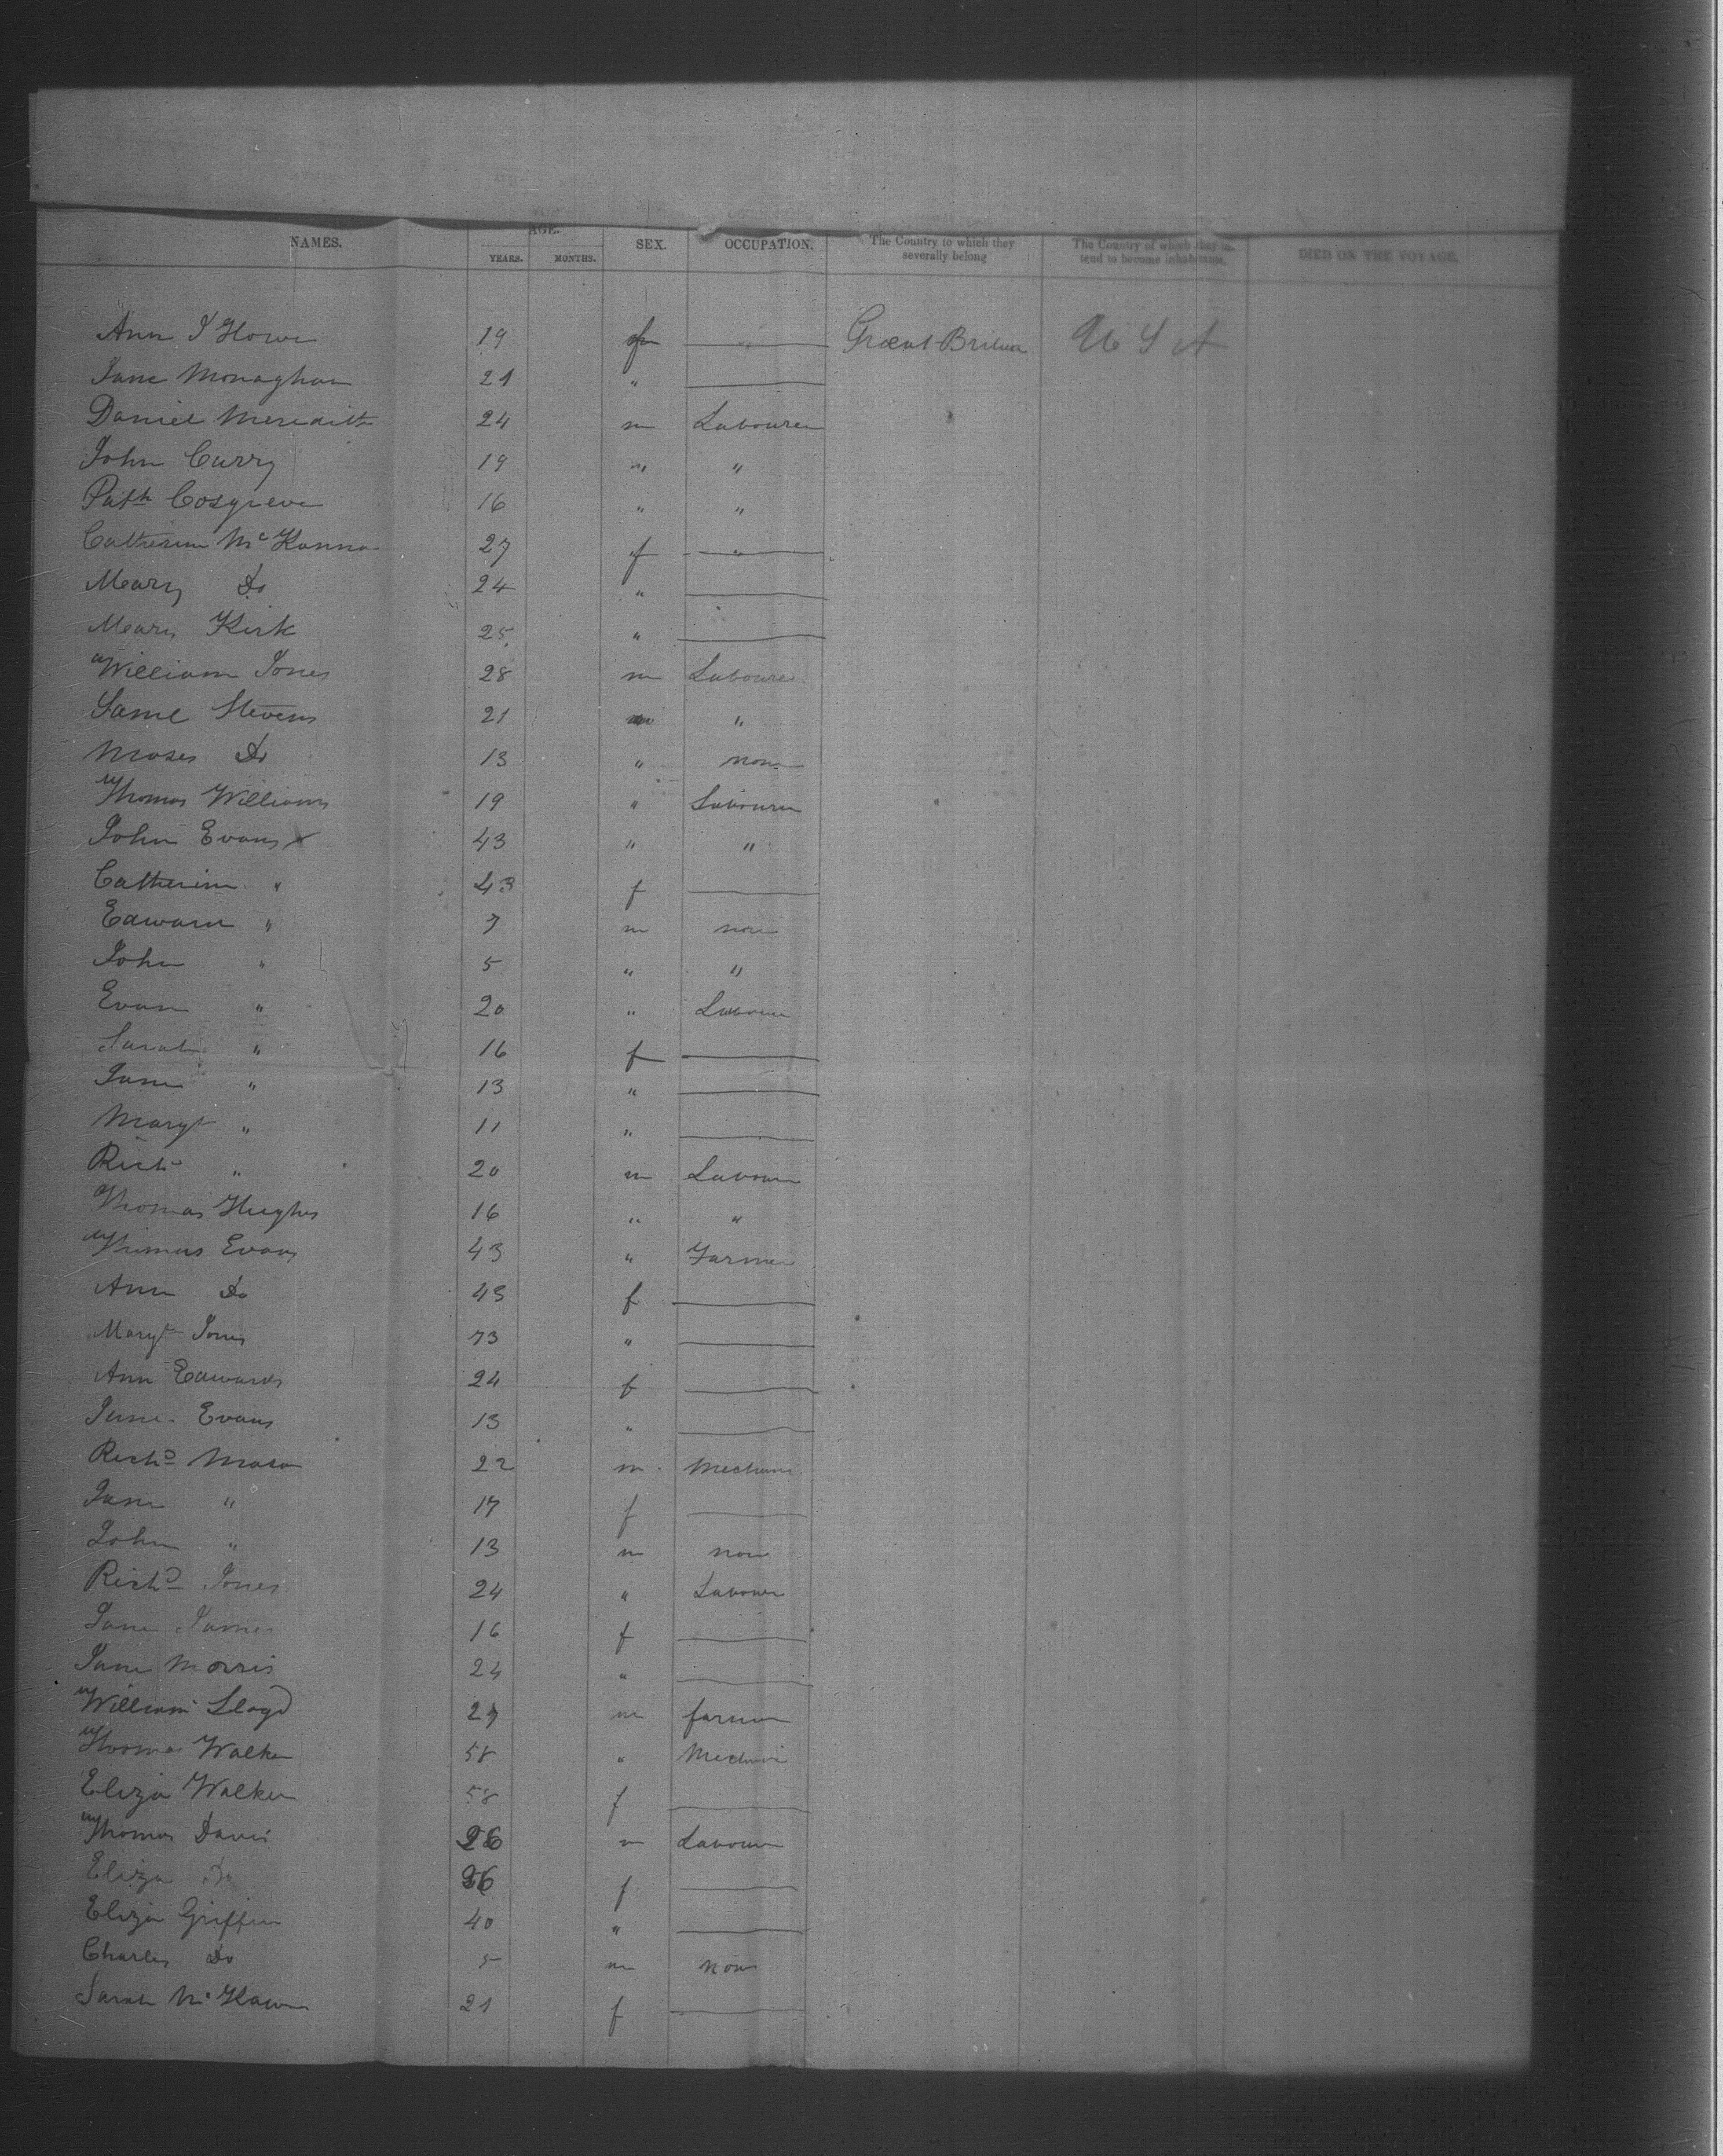 NAMES. AGE. YEARS. MONTHS. SEX. OCCUPATION. The Country to which they severally belong The Country of which they intend to become inhabitants. DIED ON THE VOYAGE.
Ann I Howe 19 f — Great Britain U S A
Jane Monaghan 21 " —
Daniel Meredith 24 m Labourer
John Curry 19 " "
Patk Cosgreve 16 " "
Catherine McKanna 27 f —
Meary Do 24 " —
Meary Kirk 25 " —
William Jones 28 m Labourer
Saml Stevens 21 m "
Moses Do 13 " none
Thomas Williams 19 " Labourer
John Evans x 43 " "
Catherine " 43 f —
Edward " 7 m none
John " 5 " "
Evan " 20 " Labourer
Sarah " 16 f —
Jane " 13 " —
Margt " 11 " —
Richd " 20 m Labourer
Thomas Hughes 16 " "
Thomas Evans 43 " Farmer
Ann Do 43 f —
Margt Jones 73 " —
Ann Edwards 24 f —
Jane Evans 13 " —
Richd Mason 22 m Mechanic
Jane " 17 f —
John " 13 m none
Richd Jones 24 " Labourer
Jane James 16 f —
Jane Morris 24 " —
William Lloyd 27 m farmer
Thomas Walker 58 " Mechanic
Eliza Walker 58 f —
Thomas Davis 26 m Labourer
Eliza Do 26 f —
Eliza Griffin 40 " —
Charles Do 5 m none
Sarah 21 f —